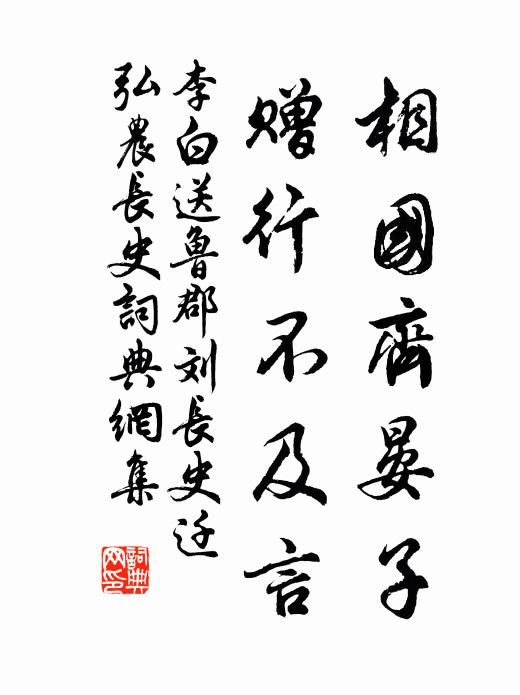 相國齊晏子
贈行不及言
李白送魯郡刘長史迁
弘農長史詞典網集
詞典网印